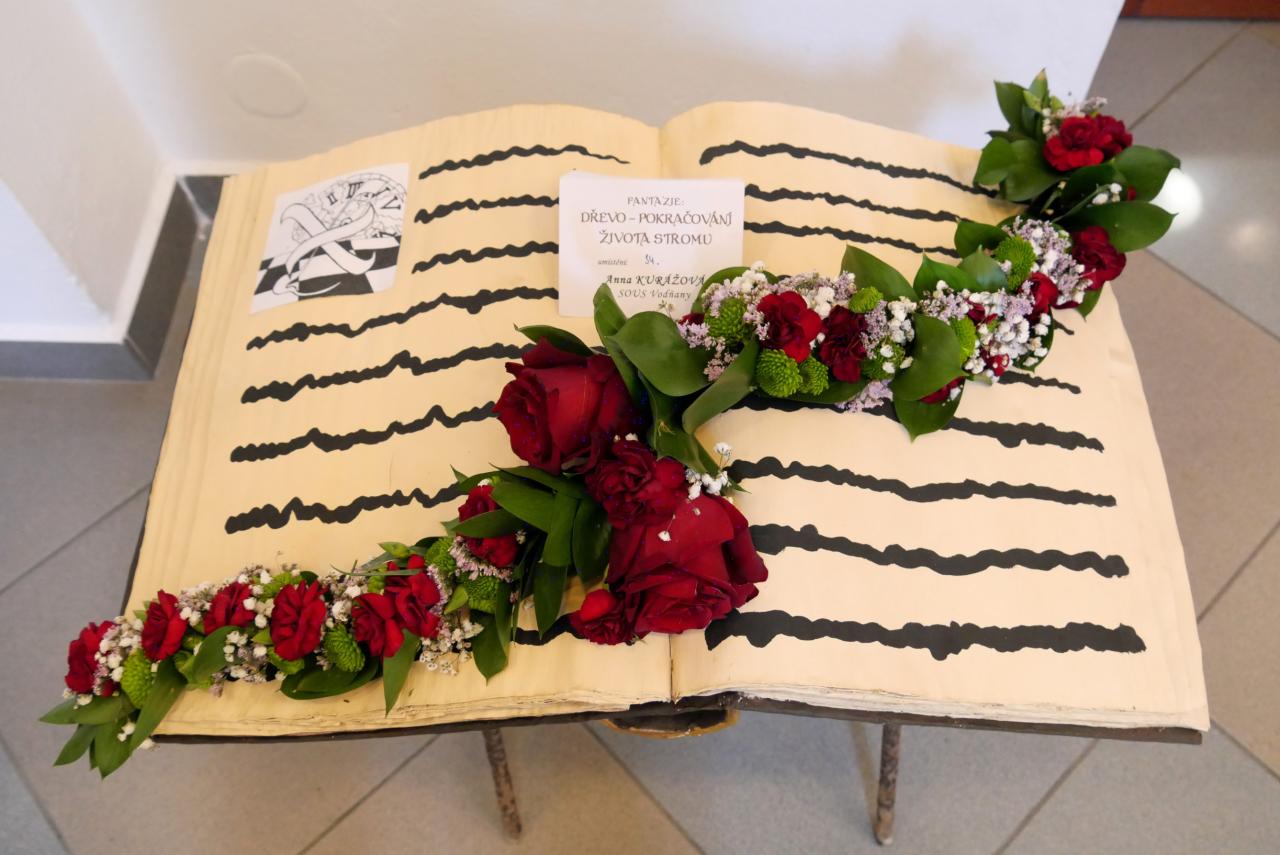 II III IV V
FANTAZIE:
DŘEVO – POKRAČOVÁNÍ
ŽIVOTA STROMU
umístění: 34.
Anna KURÁŽOVÁ
SOUS Vodňany